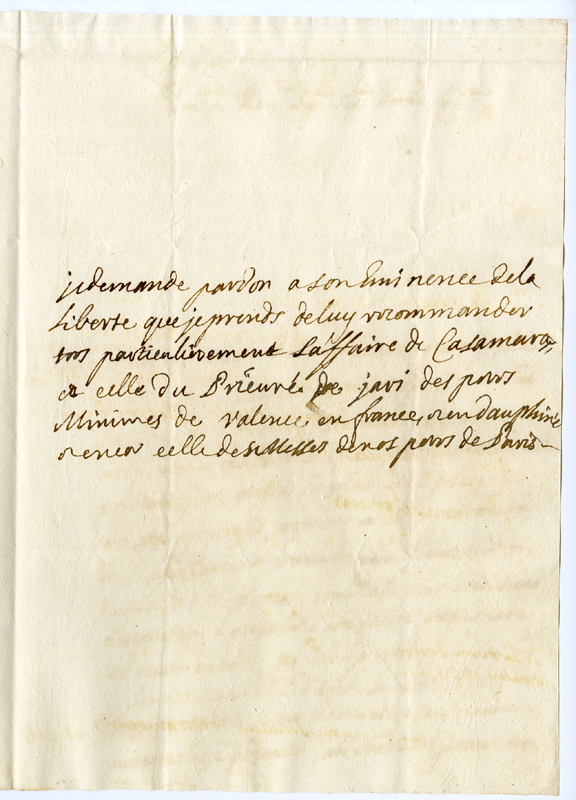 je demande pardon a son Eminence de la
Liberte que je prends de luy recommander
tres particulierement L'affaire de Casamara,
et celle du Prieuré de javi des peres
Minimes de Valence en france, & en dauphiné
& encor celle des Messes de nos peres de Paris